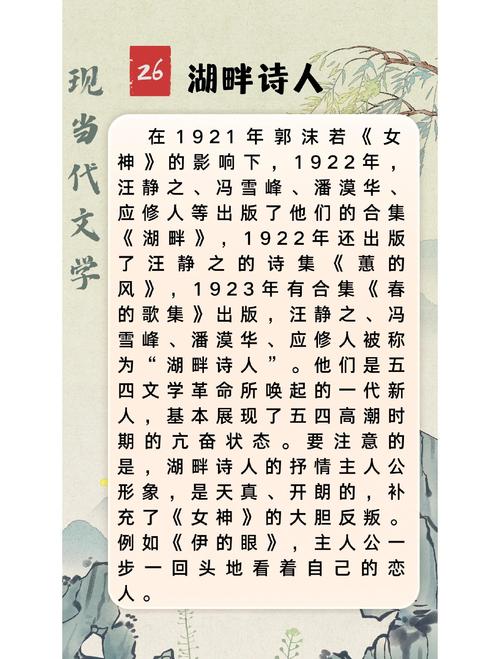 现当代文学
26
湖畔诗人
在1921年郭沫若《女
神》的影响下，1922年，
汪静之、冯雪峰、潘漠华、
应修人等出版了他们的合集
《湖畔》，1922年还出版
了汪静之的诗集《蕙的
风》，1923年有合集《春
的歌集》出版，汪静之、冯
雪峰、潘漠华、应修人被称
为“湖畔诗人”。他们是五
四文学革命所唤起的一代新
人，基本展现了五四高潮时
期的亢奋状态。要注意的
是，湖畔诗人的抒情主人公
形象，是天真、开朗的，补
充了《女神》的大胆反叛。
例如《伊的眼》，主人公一
步一回头地看着自己的恋
人。